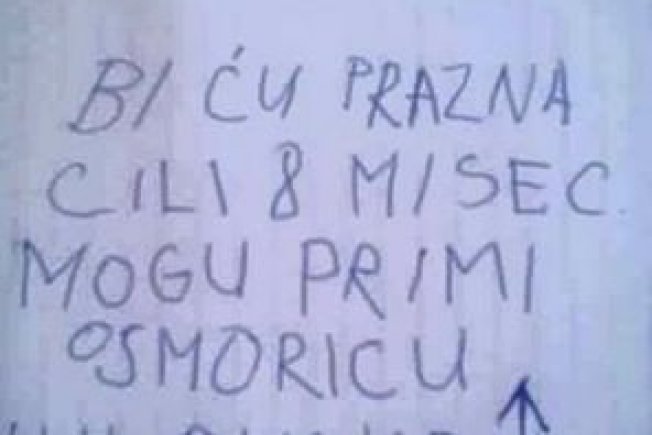 BI ĆU PRAZNA
CILI 8 MISEC.
MOGU PRIMI
OSMORICU